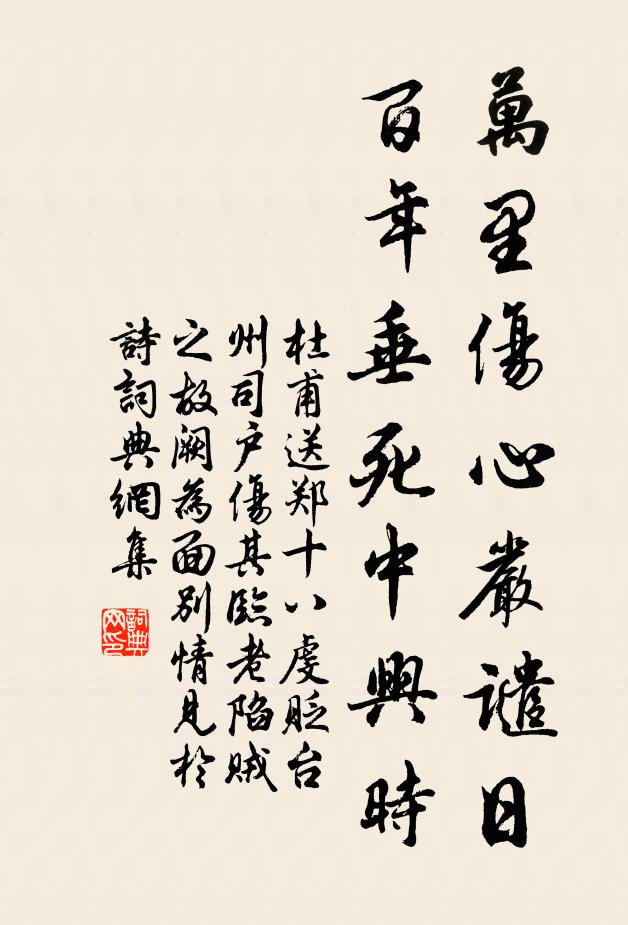 萬里傷心嚴譴日
百年垂死中興時
杜甫送郑十八虔貶台
州司戶傷其臨老陷賊
之故阙為面別情見於
詩詞典網集
詞典
网印